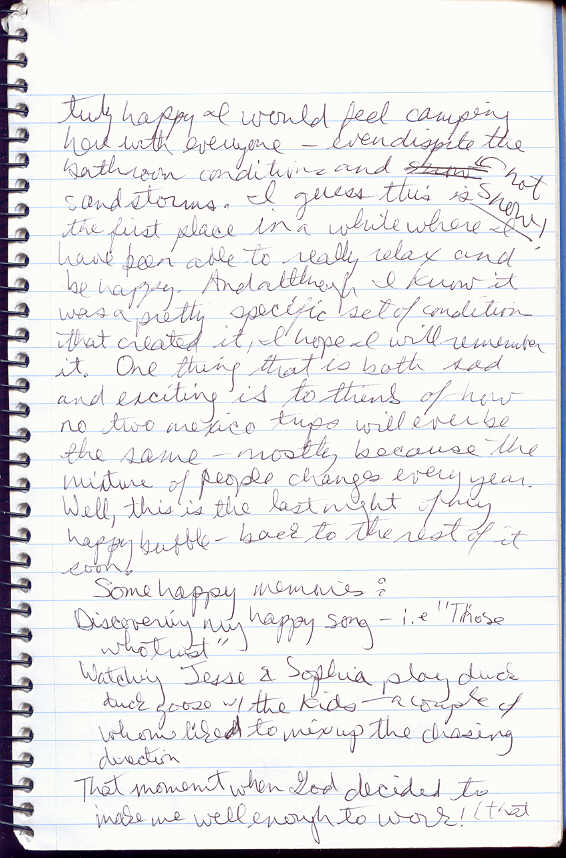 truly happy I would feel camping
here with everyone – even dispite the
bathroom conditions and snow
sandstorms. I guess this is not snow!
the first place in a while where I
have been able to really relax and
be happy. And although I know it
was a pretty specific set of condition
that created it, I hope I will remember
it. One thing that is both sad
and exciting is to think of how
no two mexico trips will ever be
the same – mostly because the
mixture of people changes every year.
Well, this is the last night of my
happy bubble – back to the rest of it
soon.
Some happy memories:
Discovering my happy song – i.e "Those
who trust"
Watching Jesse & Sophia play duck
duck goose w/ the kids – a couple of
whom liked to mix up the chasing
direction
That moment when God decided to
make me well enough to work! (that